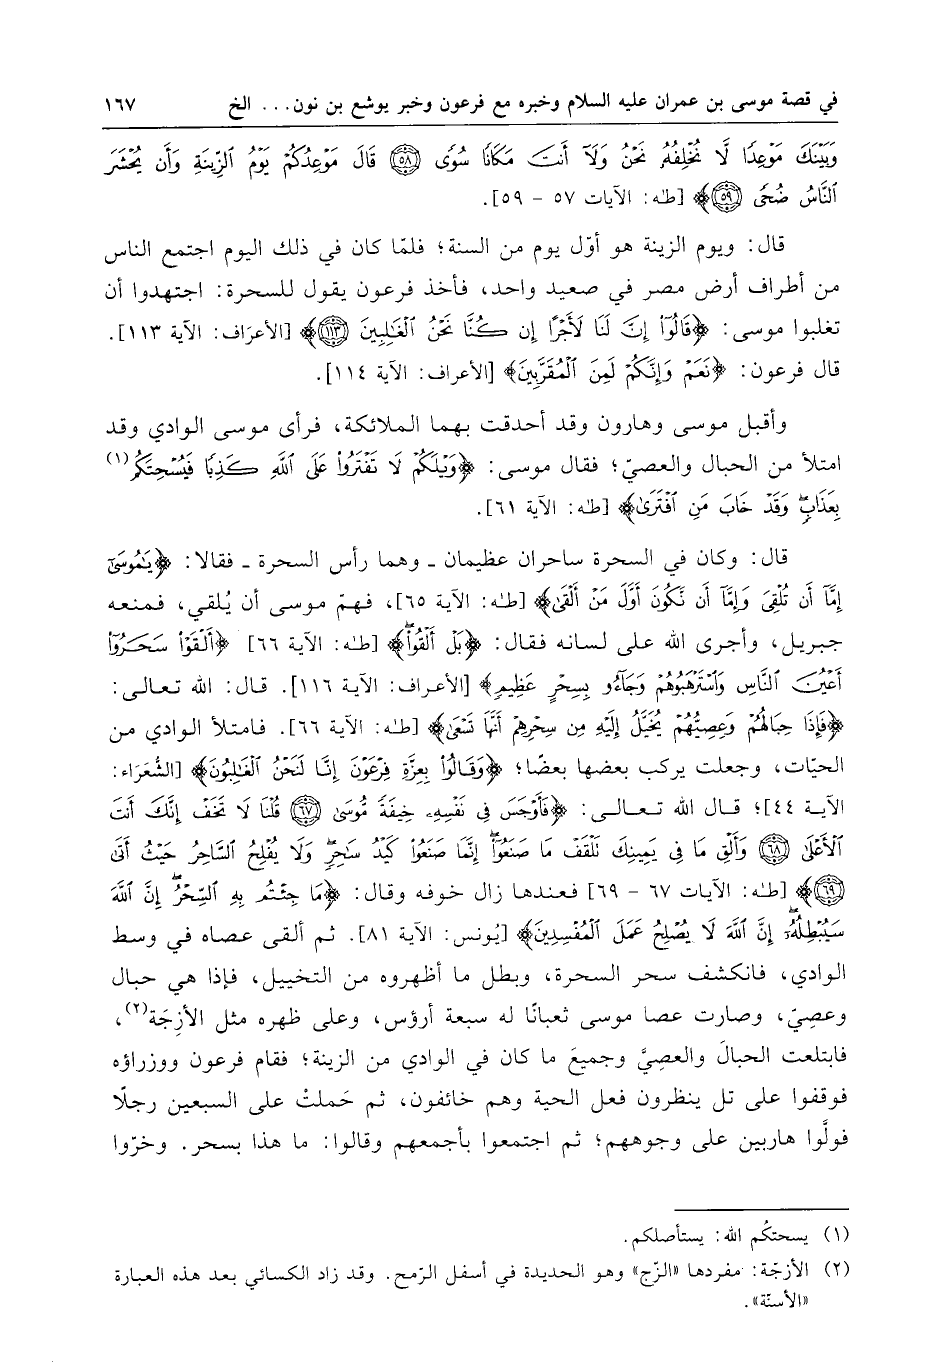 في قصة موسى بن عمران عليه السلام وخبره مع فرعون وخبر يوشع بن نون... الخ ١٦٧
وَبَيْنَكَ مَوْعِدًا لَّا نُخْلِفُهُ نَحْنُ وَلَا أَنتَ مَكَانًا سُوًى ﴿٥٨﴾ قَالَ مَوْعِدُكُمْ يَوْمُ ٱلزِّينَةِ وَأَن يُحْشَرَ
ٱلنَّاسُ ضُحًى ﴿٥٩﴾﴾ [طـٰه: الآيات ٥٧ - ٥٩].
قال: ويوم الزينة هو أوّل يوم من السنة؛ فلمّا كان في ذلك اليوم اجتمع الناس
من أطراف أرض مصر في صعيد واحد، فأخذ فرعون يقول للسحرة: اجتهدوا أن
تغلبوا موسى: ﴿قَالُوٓا۟ إِنَّ لَنَا لَأَجْرًا إِن كُنَّا نَحْنُ ٱلْغَـٰلِبِينَ ﴿١١٣﴾﴾ [الأعرَاف: الآية ١١٣].
قال فرعون: ﴿نَعَمْ وَإِنَّكُمْ لَمِنَ ٱلْمُقَرَّبِينَ﴾ [الأعراف: الآية ١١٤].
وأقبل موسى وهارون وقد أحدقت بهما الملائكة، فرأى موسى الوادي وقد
امتلأ من الحبال والعصيّ؛ فقال موسى: ﴿وَيْلَكُمْ لَا تَفْتَرُوا۟ عَلَى ٱللَّهِ كَذِبًا فَيُسْحِتَكُم(١)
بِعَذَابٍ وَقَدْ خَابَ مَنِ ٱفْتَرَىٰ﴾ [طـٰه: الآية ٦١].
قال: وكان في السحرة ساحران عظيمان ـ وهما رأس السحرة ـ فقالا: ﴿يَـٰمُوسَىٰٓ
إِمَّآ أَن تُلْقِىَ وَإِمَّآ أَن نَّكُونَ أَوَّلَ مَنْ أَلْقَىٰ﴾ [طـٰه: الآية ٦٥]، فهمّ موسى أن يُلقي، فمنعه
جبريل، وأجرى الله على لسانه فقال: ﴿بَلْ أَلْقُوا۟﴾ [طـٰه: الآية ٦٦] ﴿أَلْقَوْا۟ سَحَرُوٓا۟
أَعْيُنَ ٱلنَّاسِ وَٱسْتَرْهَبُوهُمْ وَجَآءُو بِسِحْرٍ عَظِيمٍ﴾ [الأعراف: الآية ١١٦]. قال: الله تعالى:
﴿فَإِذَا حِبَالُهُمْ وَعِصِيُّهُمْ يُخَيَّلُ إِلَيْهِ مِن سِحْرِهِمْ أَنَّهَا تَسْعَىٰ﴾ [طـٰه: الآية ٦٦]. فامتلأ الوادي من
الحيّات، وجعلت يركب بعضها بعضًا؛ ﴿وَقَالُوا۟ بِعِزَّةِ فِرْعَوْنَ إِنَّا لَنَحْنُ ٱلْغَـٰلِبُونَ﴾ [الشُّعَرَاء:
الآية ٤٤]؛ قال الله تعالى: ﴿فَأَوْجَسَ فِى نَفْسِهِۦ خِيفَةً مُّوسَىٰ ﴿٦٧﴾ قُلْنَا لَا تَخَفْ إِنَّكَ أَنتَ
ٱلْأَعْلَىٰ ﴿٦٨﴾ وَأَلْقِ مَا فِى يَمِينِكَ تَلْقَفْ مَا صَنَعُوٓا۟ إِنَّمَا صَنَعُوا۟ كَيْدُ سَـٰحِرٍ وَلَا يُفْلِحُ ٱلسَّاحِرُ حَيْثُ أَتَىٰ
﴿٦٩﴾﴾ [طـٰه: الآيات ٦٧ - ٦٩] فعندها زال خوفه وقال: ﴿مَا جِئْتُم بِهِ ٱلسِّحْرُ إِنَّ ٱللَّهَ
سَيُبْطِلُهُۥٓ إِنَّ ٱللَّهَ لَا يُصْلِحُ عَمَلَ ٱلْمُفْسِدِينَ﴾ [يُونس: الآية ٨١]. ثم ألقى عصاه في وسط
الوادي، فانكشف سحر السحرة، وبطل ما أظهروه من التخييل، فإذا هي حبال
وعصِيّ، وصارت عصا موسى ثعبانًا له سبعة أرؤس، وعلى ظهره مثل الأزِجَة(٢)،
فابتلعت الحبالَ والعصِيَّ وجميعَ ما كان في الوادي من الزينة؛ فقام فرعون ووزراؤه
فوقفوا على تل ينظرون فعل الحية وهم خائفون، ثم حَملتْ على السبعين رجلًا
فولَّوا هاربين على وجوههم؛ ثم اجتمعوا بأجمعهم وقالوا: ما هذا بسحر. وخرّوا
(١) يسحتكُم الله: يستأصلكم.
(٢) الأزجّة: مفردها «الزّج» وهو الحديدة في أسفل الرّمح. وقد زاد الكسائي بعد هذه العبارة
«الأسنّة».